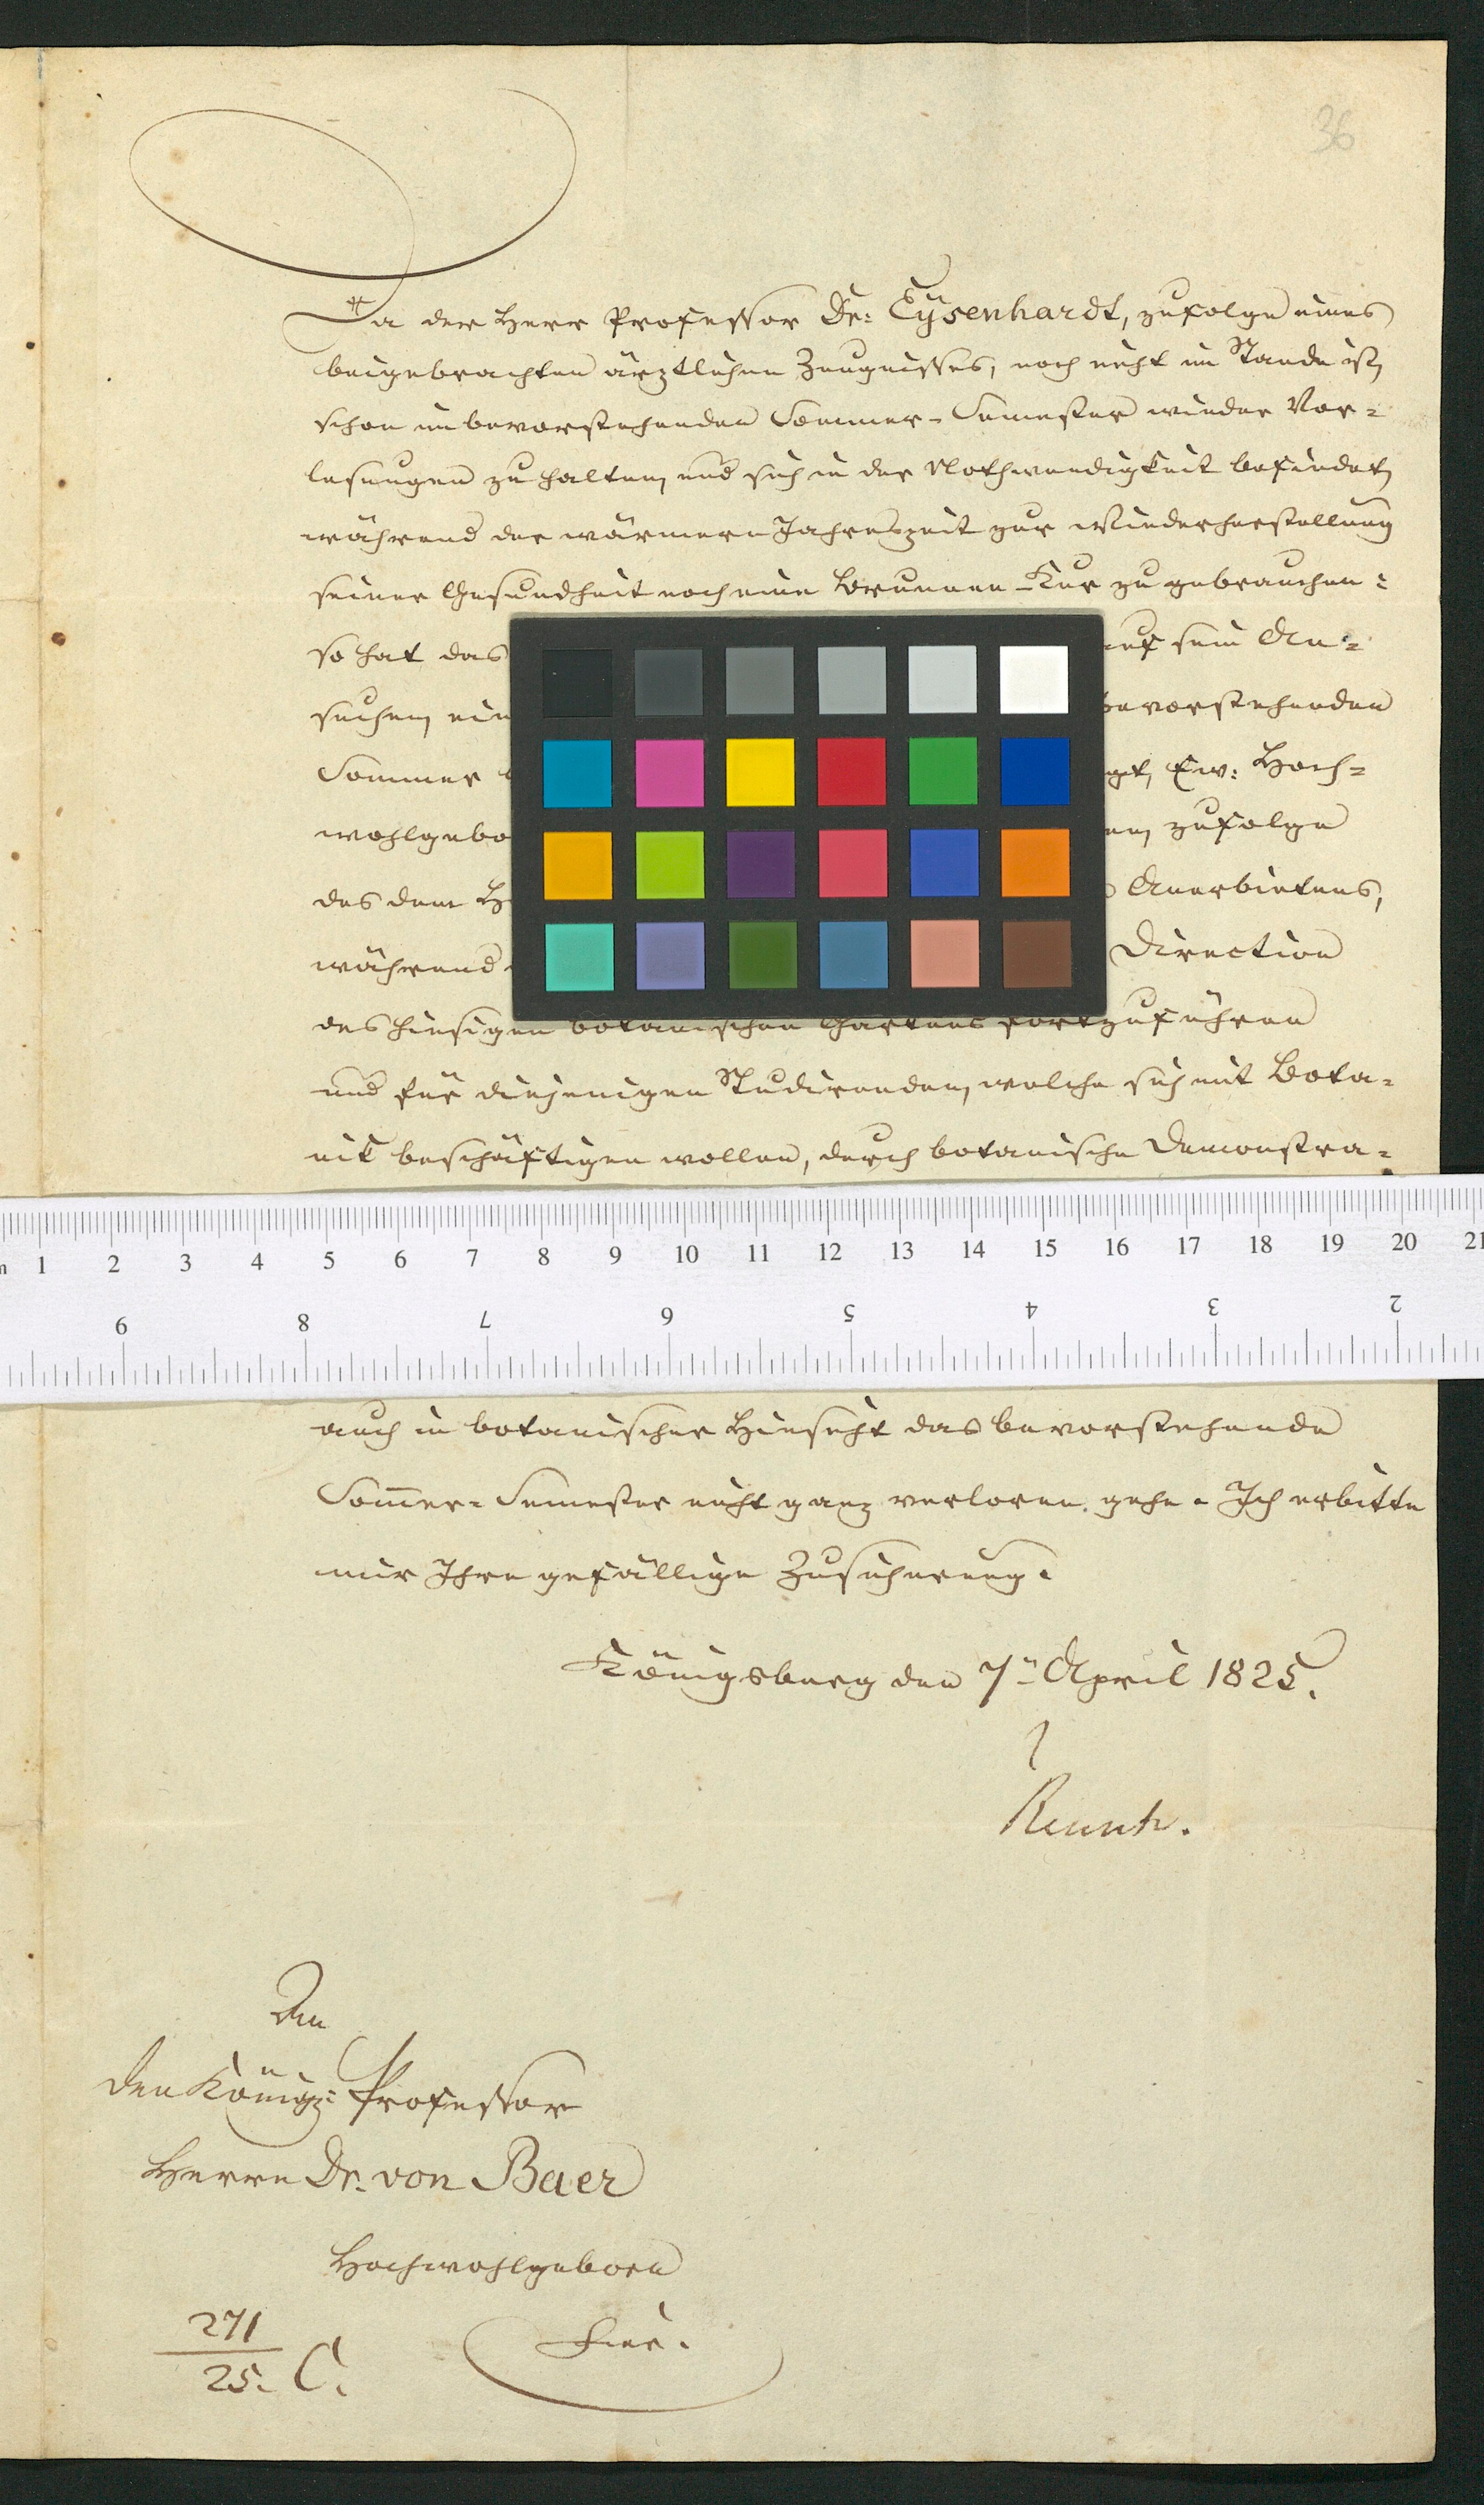 36
Da der Herr Professor Dr: Eysenhardt, zufolge eines
beigebrachten ärztlichen Zeugnisses, noch nicht im Stande ist,
schon im bevorstehenden Sommer-Semester wieder Vor-
lesungen zu halten, und sich in der Nothwendigkeit befindet,
während der wärmern Jahreszeit zur Wiederherstellung
seiner Gesundheit noch eine Brunnen-Kur zu gebrauchen:
so hat das auf sein An-
suchen, ein bevorstehenden
Sommer Ew: Hoch-
wohlgebo zufolge
des dem Anerbietens,
während Direction
des hiesigen botanischen Gartens fortzuführen
und für diejenigen Studirenden, welche sich mit Bota-
nik beschäftigen wollen, durch botanische Demonstra-
1 2 3 4 5 6 7 8 9 10 11 12 13 14 15 16 17 18 19 20 21
9 8 7 6 5 4 3 2
auch in botanischer Hinsicht das bevorstehende
Sommer-Semester nicht ganz verloren gehe. Ich erbitte
mir Ihre gefällige Zusicherung.
Königsberg den 7n April 1825.
An
den Königl: Professor
Herrn Dr. von Baer
Hochwohlgeborn
hier.
271
25. C.